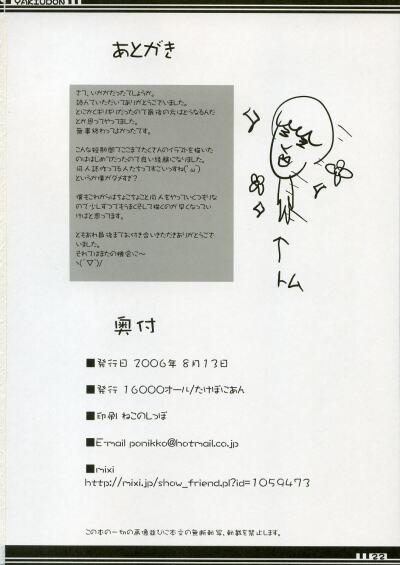 YAKIUDON
あとがき
さて、いかがだったでしょうか。
読んでいただいてありがとうございました。
とにかくギリギリだったので最後の方はどうなるんだ
とか思ってやってました。
無事終わってよかったです。
こんな短時間でここまでたくさんのイラストを描いた
のははじめてだったので良い経験になりました。
同人誌作ってる人たちってすごいっすね(´ω`)
というか僕がダメすぎ?
僕もこれからはちょこちょこと同人をやっていくつもりな
ので少しずつでもうまくそして描くのが早くなってい
ければと思ってます。
ともあれ最後までお付き合いいただきありがとうござ
いました。
それではまたの機会に～
ヽ(´▽`)/
↑
トム
奥付
■発行日 2006年 8月13日
■発行 16000オール/たけぽにあん
■印刷 ねこのしっぽ
■E-mail ponikko@hotmail.co.jp
■mixi
http://mixi.jp/show_friend.pl?id=1059473
この本の一切の画像並びに本文の無断転写、転載を禁止します。
22